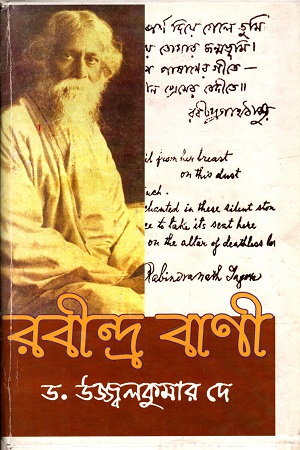 দিয়ে গেলে তুমি
তোমার জন্মভূমি।
পাষাণের গীতে—
প্রেমের বেদীতে॥
রবীন্দ্রনাথ ঠাকুর
from her breast
on this dust
uch.
chanted in these silent ston
ce to take its seat here
on the altar of deathless lov
Rabindranath Tagore
রবীন্দ্র বাণী
ড. উজ্জ্বলকুমার দে